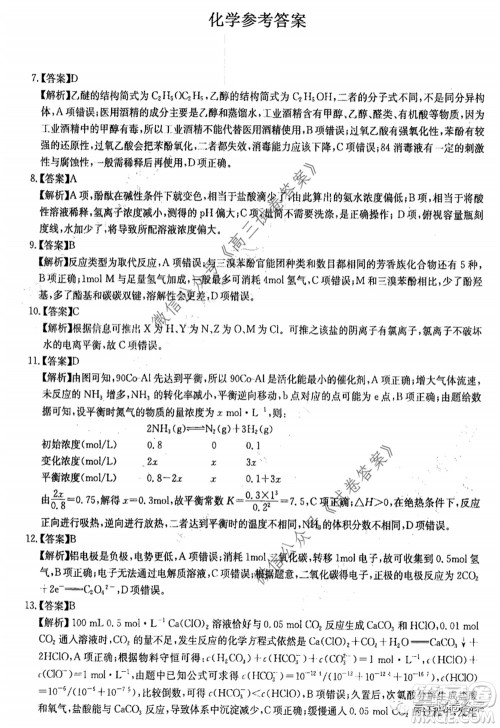 化学参考答案
7.【答案】D
【解析】乙醚的结构简式为 C₂H₅OC₂H₅,乙醇的结构简式为 C₂H₅OH,二者的分子式不同,不是同分异构
体,A项错误;医用酒精的成分主要是乙醇和蒸馏水,工业酒精含有甲醇、乙醇、醛类、有机酸等物质,因为
工业酒精中的甲醇有毒,所以工业酒精不能代替医用酒精使用,B项错误;过氧乙酸有强氧化性,苯酚有较
强的还原性,过氧乙酸会把苯酚氧化,二者都失效,消毒能力减弱,C项错误;84消毒液有一定的刺激
性与腐蚀性,一般需稀释后再使用,D项正确。
8.【答案】B
【解析】A项,酚酞在碱性条件下就变色,相当于盐酸滴少了,由此算出的氨水浓度偏低;B项,相当于将酸
性溶液稀释,氢离子浓度减小,测得的pH偏大;C项,盐筒不需要洗涤,是正确操作;D项,俯视容量瓶刻
度线,水加少了,将导致所配溶液浓度偏大。
9.【答案】B
【解析】反应类型为取代反应,A项错误;与三溴苯酚官能团种类和数目都相同的芳香族化合物还有5种,
B项正确;1mol M与足量氢气加成,一般最多可消耗4mol氢气,C项错误;M和三溴苯酚相比,少了酚羟
基,多了酯基和碳碳双键,溶解性会更差,D项错误。
10.【答案】C
【解析】根据信息可推出X为H,Y为N,Z为O,M为Cl。C项,可推之该盐的阴离子有氯离子,氯离子不破坏
水的电离平衡,故C项错误。
11.【答案】D
【解析】由图可知,90Co-Al先达到平衡,所以90Co-Al是活化能最小的催化剂,A项正确;增大气体流速,
未反应的NH₃增多,NH₃的转化率减小,平衡逆向移动,b点对应的点可能为e点,B项正确;由题给数
据可知,设平衡时氮气的物质的量浓度为 x mol·L⁻¹,则:
2NH₃(g)⇌N₂(g)+3H₂(g)
初始浓度(mol/L) 0.8 0 0.1
变化浓度(mol/L) 2x x 3x
平衡浓度(mol/L) 0.8−2x x 0.1+3x
由2x/0.8=0.75,解得 x=0.3mol,故平衡常数 K=0.3×1³/0.2²=7.5,C项正确;△H>0,在绝热条件下,反应
正向进行吸热,逆向进行放热,所以二者到平衡时的温度不相同,NH₃的体积分数不同,D项错误。
12.【答案】B
【解析】铝电极是负极,电势更低,A项错误;当消耗1mol二氧化碳,转移1mol电子,故可收集到0.5mol氢
气,B项正确;电子无法通过电解质溶液,C项错误;根据题意,二氧化碳得电子,故正极的反应为2CO₂
+2e⁻═C₂O₄²⁻,D项错误。
13.【答案】B
【解析】100 mL 0.5 mol·L⁻¹ Ca(ClO)₂溶液恰好与0.05 mol CO₂反应生成CaCO₃和HClO,0.01
mol CO₂时,CO₂的量不足,发生反应的化学方程式依然是Ca(ClO)₂+CO₂+H₂O═CaCO₃↓+
2HClO,A项正确;